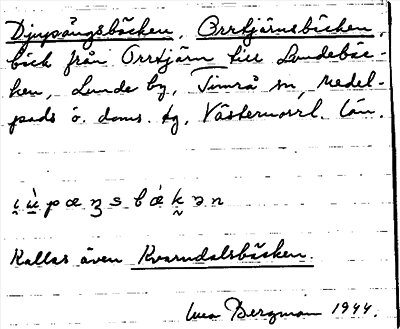 Djupängsbäcken, Orrtjärnsbäcken,
bäck från Orrtjärn till Lundebäc-
ken, Lunde by, Timrå sn, Medel-
pads ö. doms. tg, Västernorrl. län.
Kallas även Kvarndalsbäcken.
Bergman 1944.